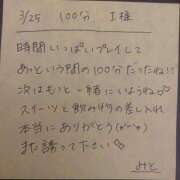 3/25 100分 I様
時間いっぱいプレイして
あっという間の100分だったね!!
次はもっと一緒にいようね♂
スイーツと飲み物の差し入れ
本当にありがとう(^-^)
また誘って下さい♂
みと